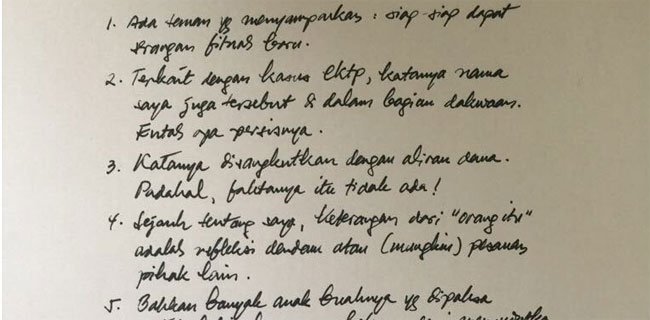 1. Ada teman yg menyampaikan : siap-siap dapat
serangan fitnah baru.
2. Terkait dengan kasus ektp, katanya nama
saya juga tersebut di dalam bagian dakwaan.
Entah apa persisnya.
3. Katanya disangkutkan dengan aliran dana.
Padahal, faktanya itu tidak ada!
4. Sejauh tentang saya, keterangan dari "orang itu"
adalah refleksi dendam atau (mungkin) pesanan
pihak lain.
5. Bahkan banyak anak buahnya yg dipaksa